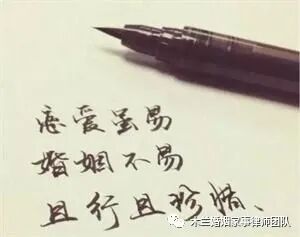 恋爱虽易
婚姻不易
且行且珍惜、
木兰婚姻家事律师团队